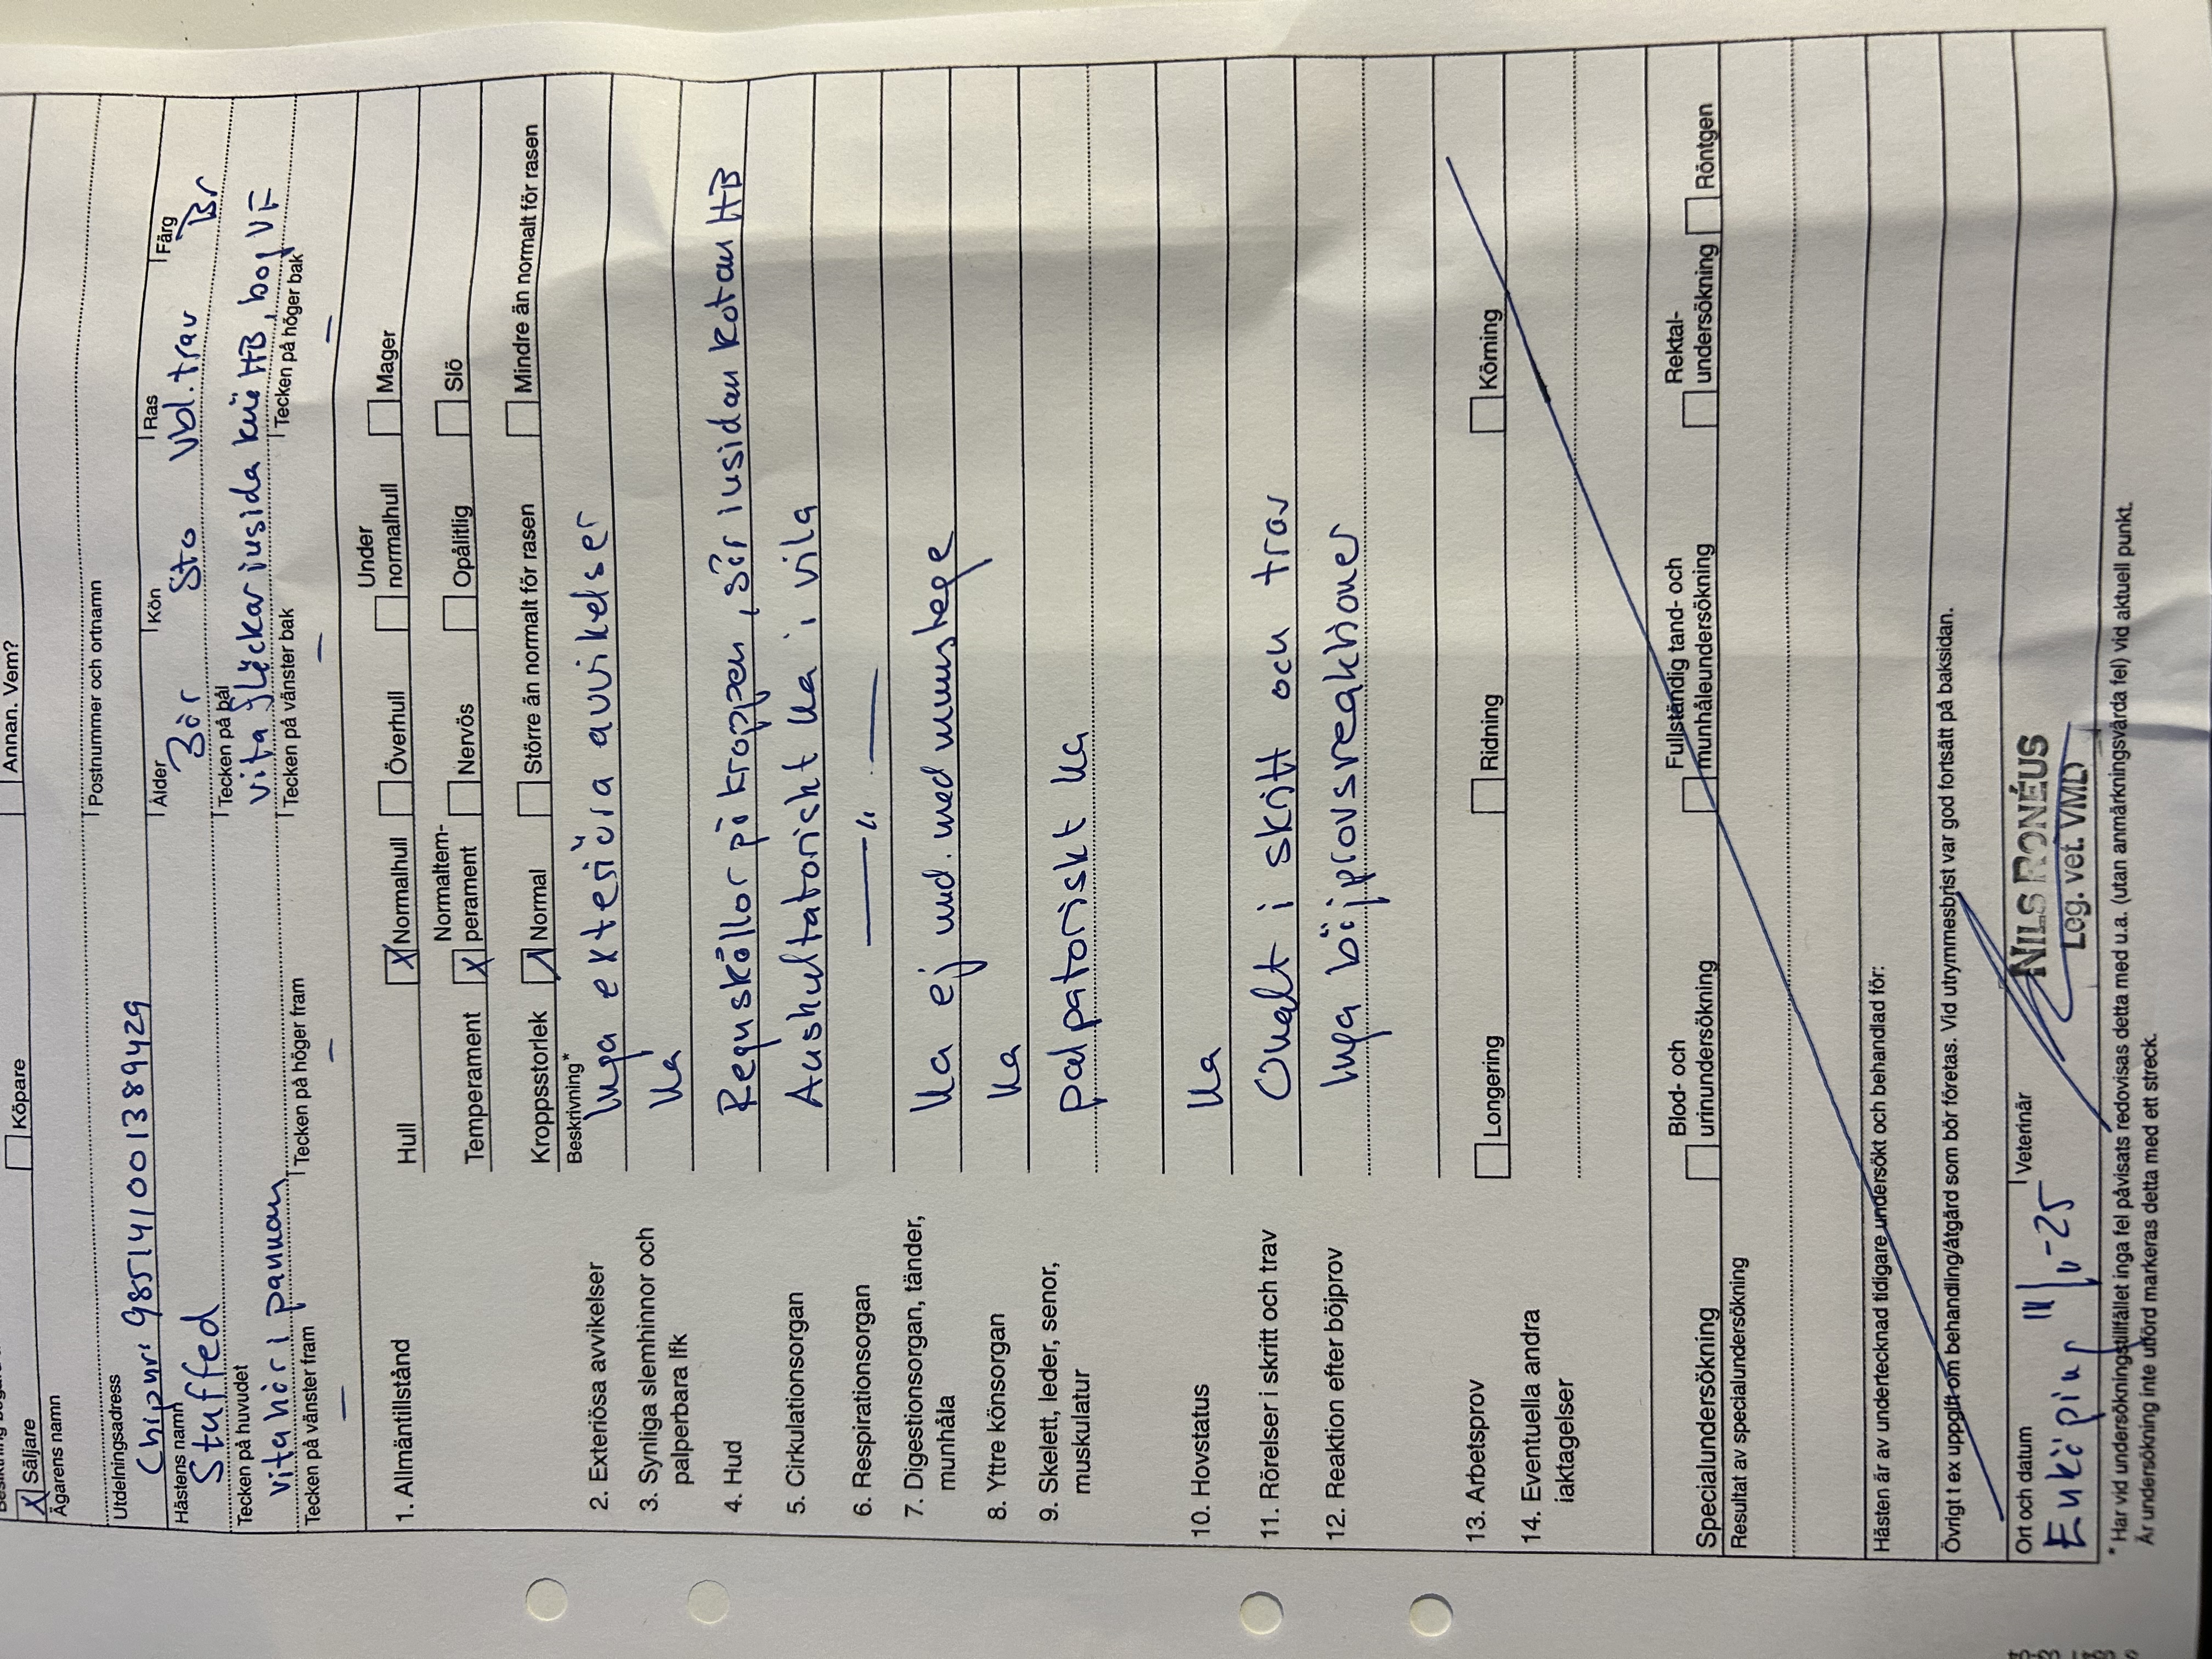 Säljare Köpare Annan. Vem?
Ägarens namn
Utdelningsadress Postnummer och ortnamn
Chipnr: 985141001389429
Hästens namn Ålder Kön Ras Färg
Stuffed 3år Sto Vbl.trav Br
Tecken på huvudet Tecken på bål
vita hår i pannan vita fläckar insida knä HB, bog VF
Tecken på vänster fram Tecken på höger fram Tecken på vänster bak Tecken på höger bak
— — — —
1. Allmäntillstånd Hull X Normalhull Överhull Under normalhull Mager
Temperament X Normaltem-perament Nervös Opålitlig Slö
Kroppsstorlek Normal Större än normalt för rasen Mindre än normalt för rasen
Beskrivning*
2. Exteriösa avvikelser Inga exteriöra avvikelser
3. Synliga slemhinnor och Ua
palperbara lfk
4. Hud Regnskållor på kroppen, sår insidan kotan HB
5. Cirkulationsorgan Auskultatoriskt ua i vila
6. Respirationsorgan —"—
7. Digestionsorgan, tänder, Ua ej und. med munstege
munhåla
8. Yttre könsorgan Ua
9. Skelett, leder, senor, palpatoriskt ua
muskulatur
10. Hovstatus Ua
11. Rörelser i skritt och trav Ohalt i skritt och trav
12. Reaktion efter böjprov Inga böjprovsreaktioner
13. Arbetsprov Longering Ridning Körning
14. Eventuella andra
iakttagelser
Specialundersökning Blod- och urinundersökning Fullständig tand- och munhåleundersökning Rektal-undersökning Röntgen
Resultat av specialundersökning
Hästen är av undertecknad tidigare undersökt och behandlad för:
Övrigt t ex uppgift om behandling/åtgärd som bör företas. Vid utrymmesbrist var god fortsätt på baksidan.
Ort och datum Veterinär
Enköping -25 NILS RONÉUS
Leg. vet. VMD
* Har vid undersökningstillfället inga fel påvisats redovisas detta med u.a. (utan anmärkningsvärda fel) vid aktuell punkt.
Är undersökning inte utförd markeras detta med ett streck.